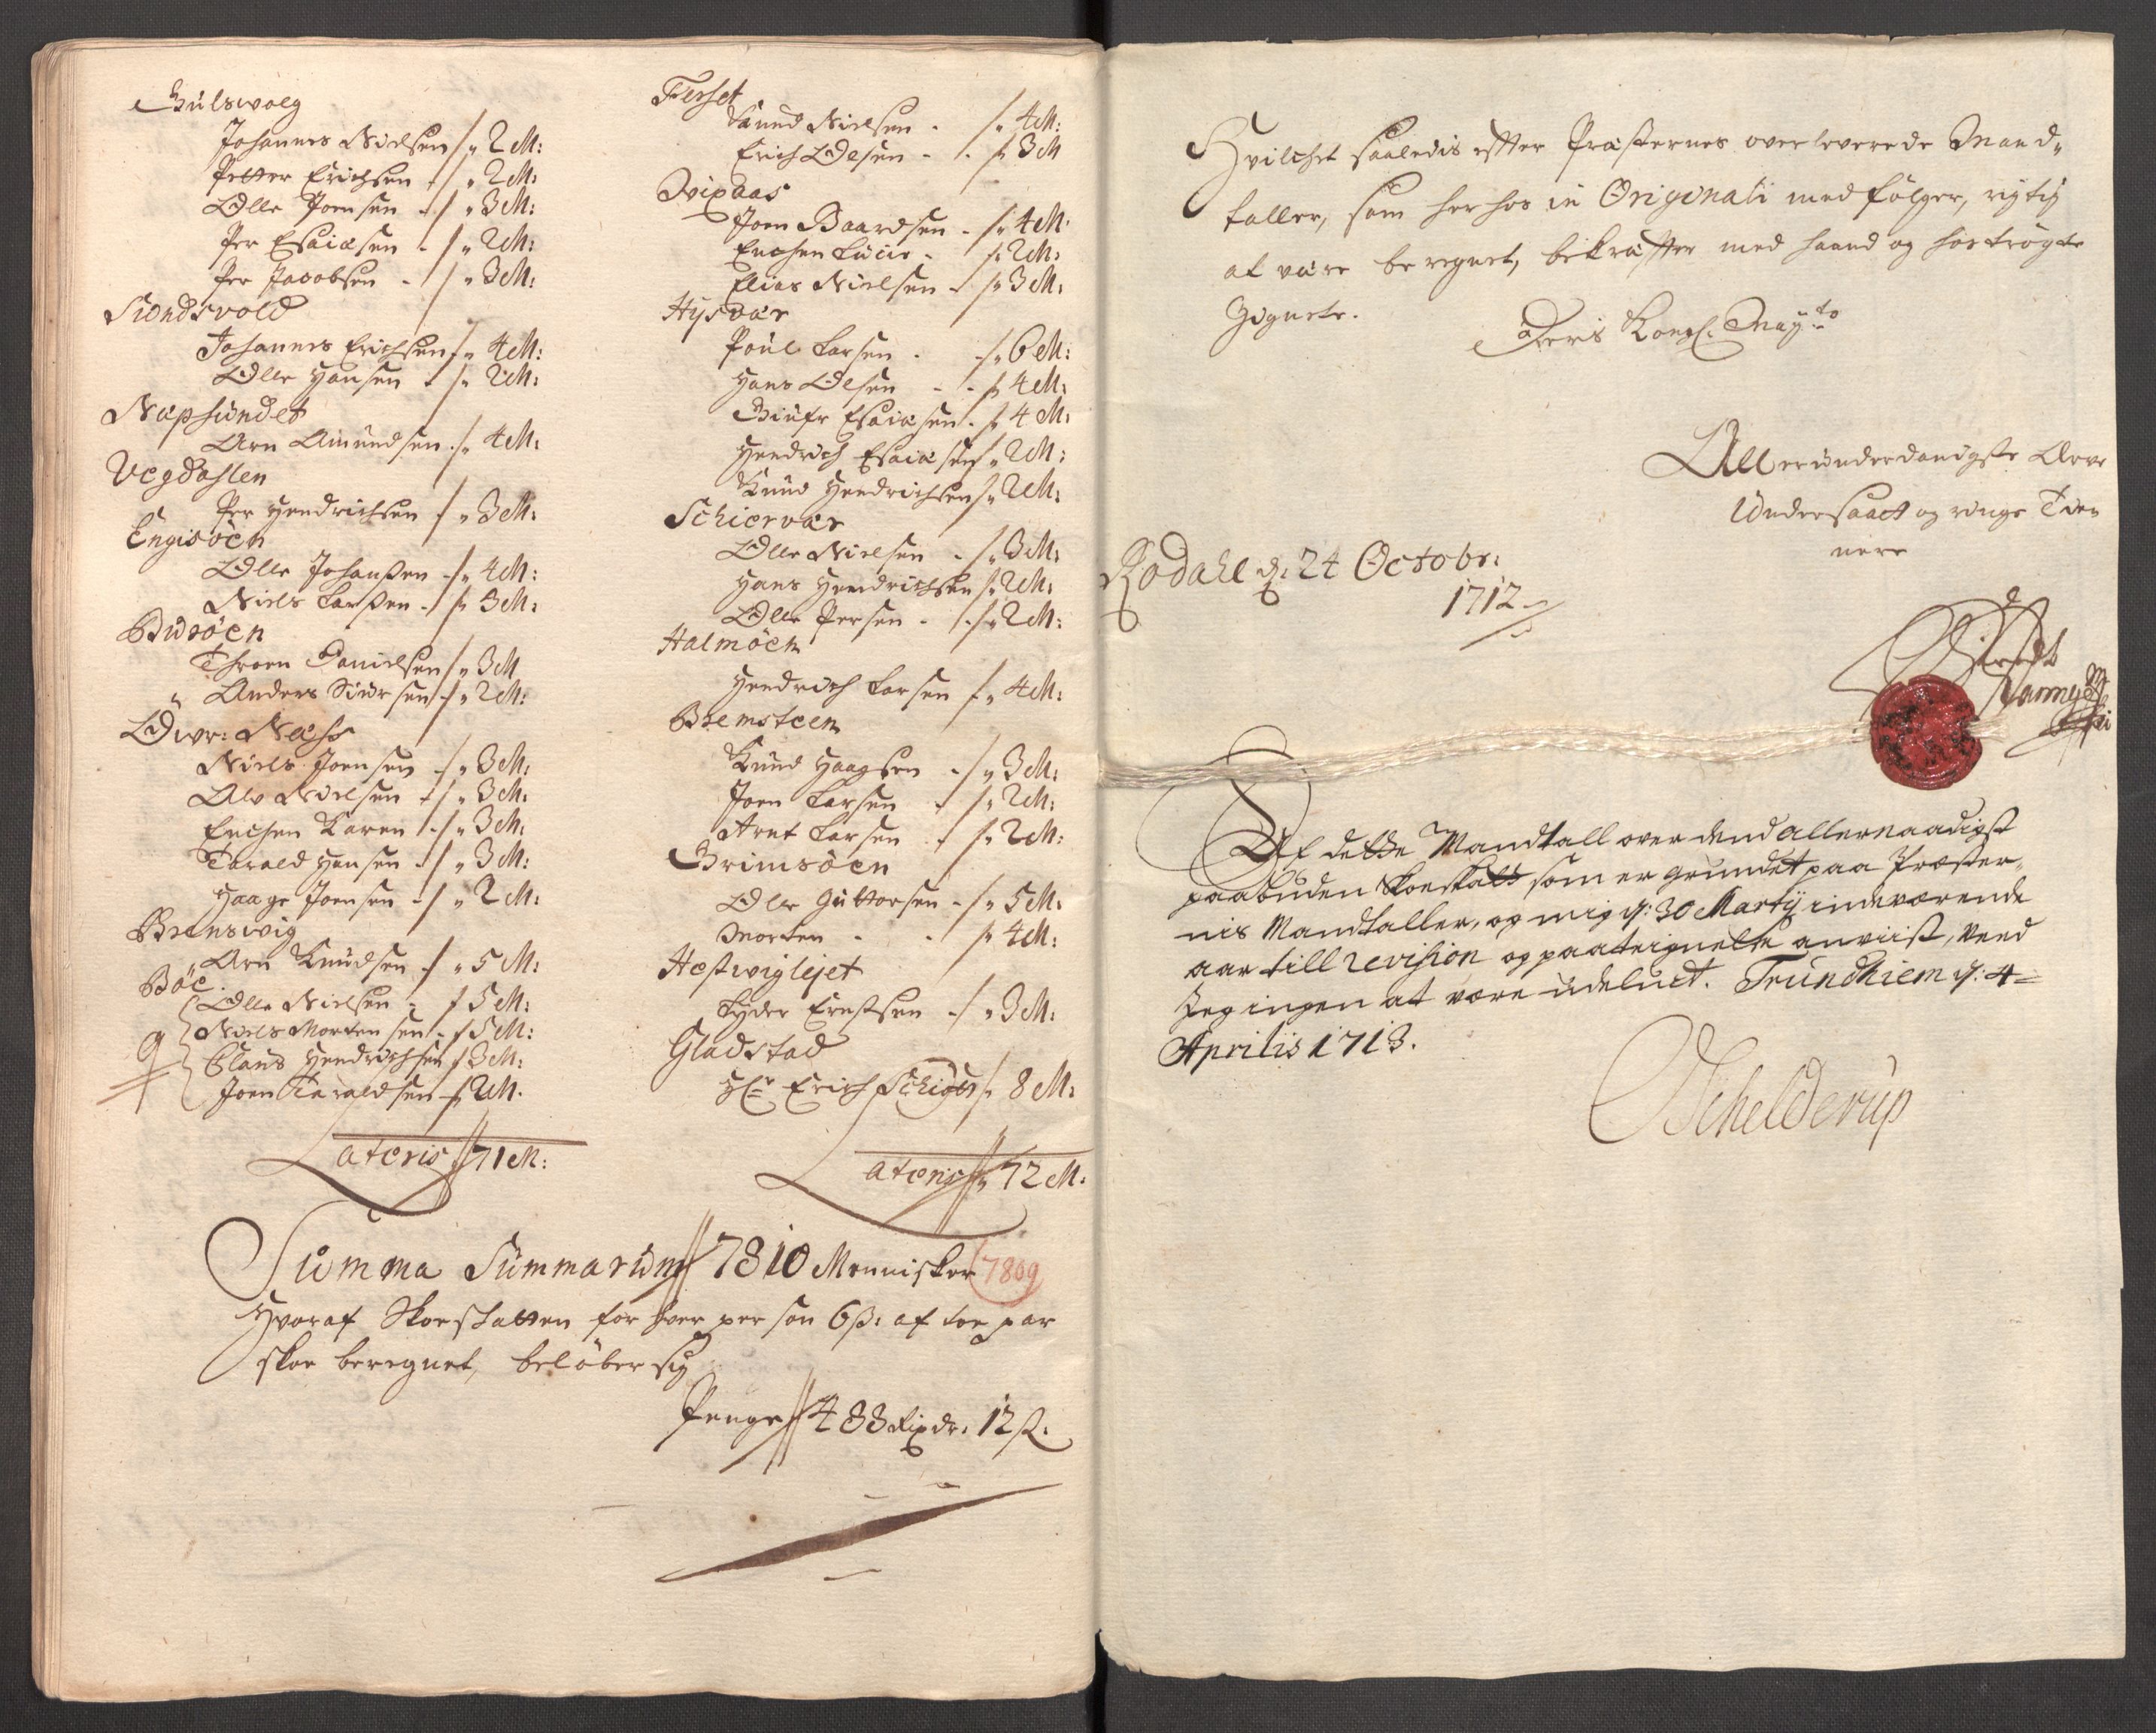 Gulsvaeg
Johannes Nielsen /" 2 M:
Petter Erichsen /" 2 M:
Olle Joensen /" 3 M:
Per Esaiæsen /" 2 M:
Per Jacobsen /" 3 M:
Sundsvold
Johannes Erichsen /" 4 M:
Olle Hansen /" 2 M:
Næpsundet
Arn Amundsen /" 4 M:
Vegdahlen
Per Hendrichsen /" 3 M:
Engisöen
Olle Johanßen /" 4 M:
Niels Larßen /" 3 M:
Buröen
Throen Danielsen /" 3 M
" Anders Siursen /" 2 M:
Öwr: Næss
Niels Joensen /" 3 M:
Alv Nielsen /" 3 M:
Enchen Karen /" 3 M:
Tarald Hansen /" 3 M:
Haage Joensen /" 2 M:
Brensvig
Arn Knudsen /" 5 M:
Böe
Olle Nielsen / 5 M:
Niels Mortensen / 5 M:
9 Claus Hendrichsen / 3 M:
Joen Taraldsen / 2 M.
Lateris // 71 M:
Ferset
Knud Nielsen /" 4 M:
Erich Olesen /" 3 M
Vixaas
Joen Baardsen /" 4 M:
Enchen Lucie /" 2 M:
Elias Nielsen /" 3 M:
Hysvær
Poul Larsen /" 6 M:
Hans Olesen /" 4 M:
Giufe Esaiæsen /" 4 M:
Hendrich Esaiæsen /" 2 M:
Knud Hendrichsen /" 2 M:
Schiervær
Olle Nielsen /" 3 M:
Hans Hendrichsen /" 2 M:
Olle Persen /" 2 M:
Halmöen
Hendrich Larsen /" 4 M:
Bremsteen
Knud Haagsen /" 3 M:
Joen Larsen /" 2 M:
Arnt Larsen /" 2 M:
Grimsöen
Olle Guttorsen /" 5 M:
Morten /" 4 M:
Hestviglejet
Lyder Ernstsen /" 3 M:
Gladstad
Hr Erich Schiger /" 8 M:
Lateris // 72 M:
Summa Summarum // 7810 Mennisker (7809
Hvoraf Skoeskatten for hver person 6 ß: af toe par
skoe beregnet, beløber sig
Penge // 488 Rixdr: 12 ß.
Hvilchet saaledis efter Præsternes overleverede Mand-
taller, som herhos in Originali medfølger, rigtig
at være beregnet, bekræfter med haand og hostrøgte
Zignete.
Deris Kongl: Mayts
Allerunderdanigste Arve
Undersaatt og ringe Tien
nere
Rødahl d: 24 Octobr:
1712
Af dette Mandtall over dend allernaadigst
paabuden Skoeskatt som er grundet paa Præster-
nis Mandtaller, og mig d: 30 Martij indeværende
aar till revision og paateignelse anviist, Veed
Jeg ingen at være udeluct. Trundhiem d: 4
Aprilis 1713.
Schelderup